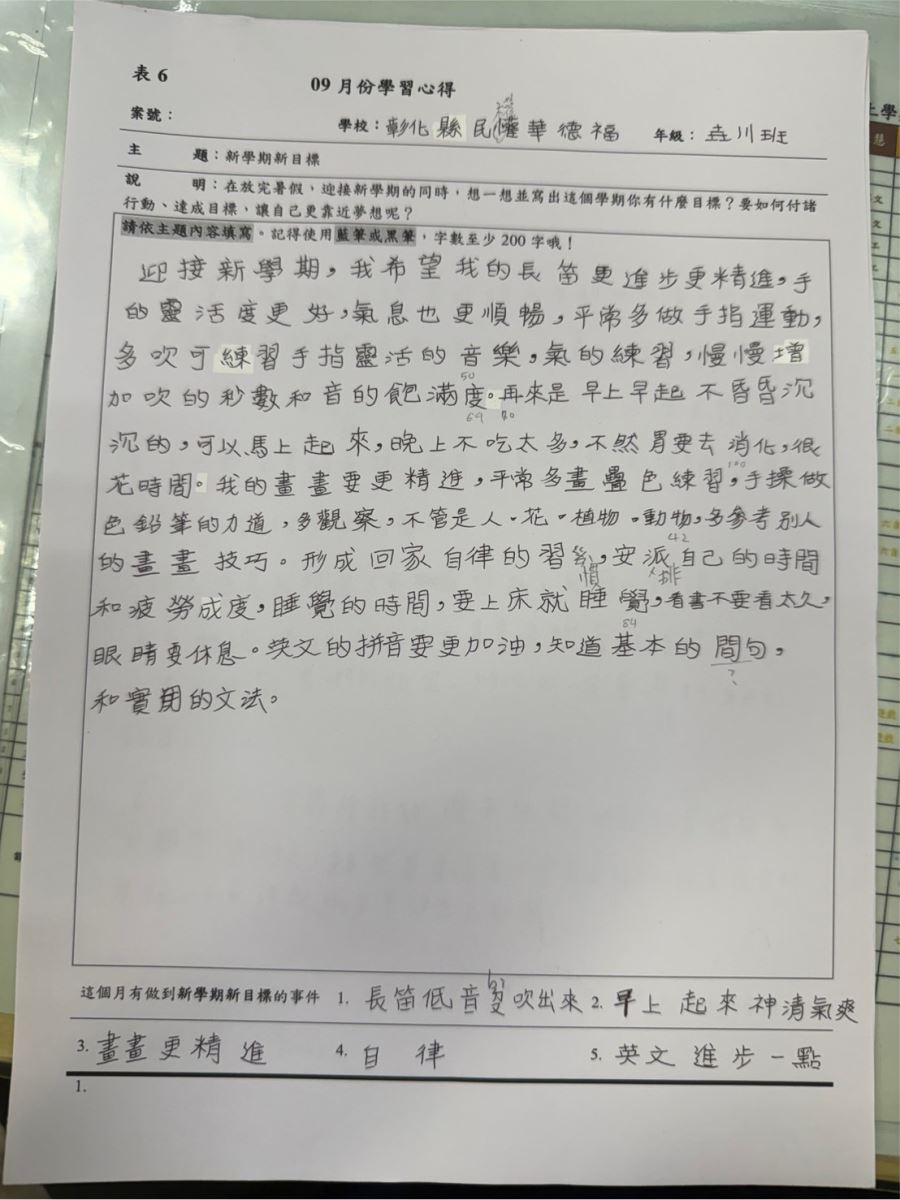 表 6
09 月份學習心得
案號：
學校：彰化縣民權華德福 年級：垚川班
主 題：新學期新目標
說 明：在放完暑假，迎接新學期的同時，想一想並寫出這個學期你有什麼目標？要如何付諸
行動、達成目標，讓自己更靠近夢想呢？
請依主題內容填寫。記得使用藍筆或黑筆，字數至少 200 字哦！
迎接新學期，我希望我的長笛更進步更精進，手
的靈活度更好，氣息也更順暢，平常多做手指運動，
多吹可練習手指靈活的音樂，氣的練習，慢慢增
加吹的秒數和音的飽滿度。再來是早上早起不昏昏沉
50
69 80
沉的，可以馬上起來，晚上不吃太多，不然胃要去消化，很
花時間。我的畫畫要更精進，平常多畫疊色練習，手操做
100
色鉛筆的力道，多觀察，不管是人。花。植物。動物，多參考別人
的畫畫技巧。形成回家自律的習慣，安派自己的時間
42
排
和疲勞成度，睡覺的時間，要上床就睡覺，看書不要看太久，
84
眼睛要休息。英文的拼音要更加油，知道基本的問句，
?
和實用的文法。
這個月有做到新學期新目標的事件 1. 長笛低音要吹出來 2. 早上起來神清氣爽
3. 畫畫更精進 4. 自律 5. 英文進步一點
1.